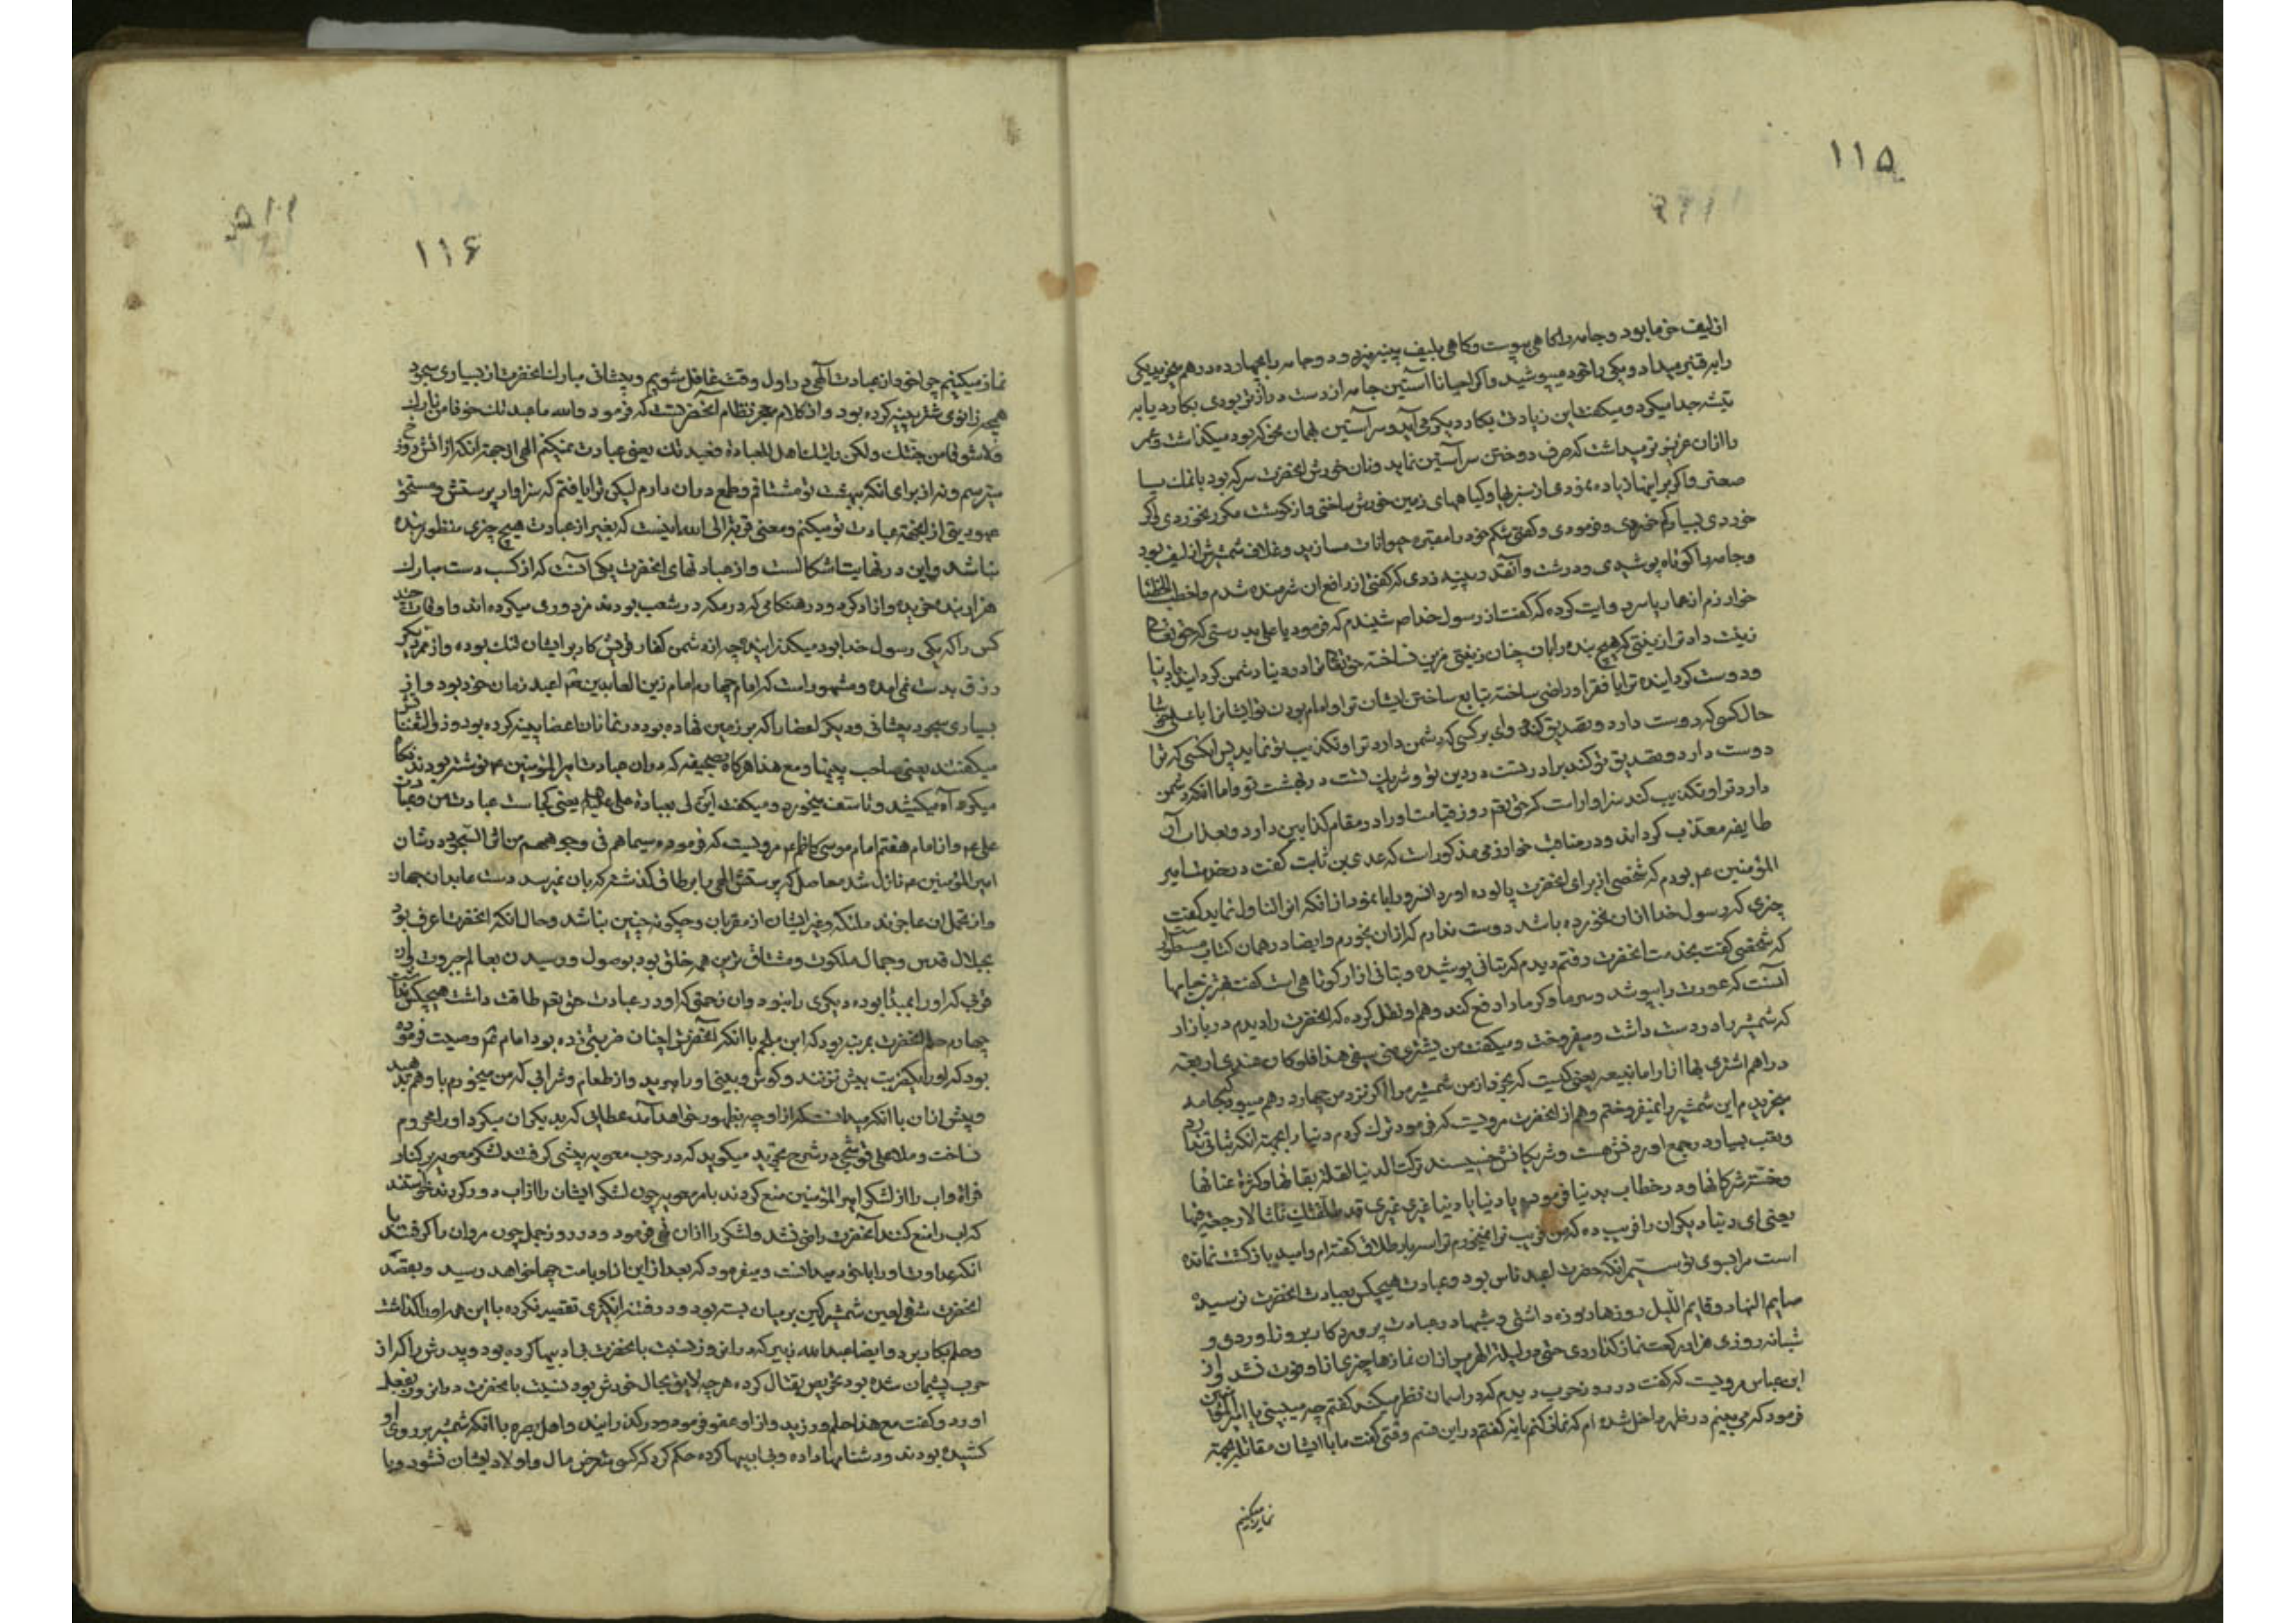 ۱۱۵
از لیف خرما بود و جامه را کاهی بپوست و کاهی بلیف پینه میزد و دو جامه را بچهارده درهم میخرید یکی
را بر قنبر میداد و یکی را خود میپوشید و اگر احیانا آستین جامه از دست دراز تر بودی بکارد یا به
تیشه جدا میکرد و میکفت این زیادتی بکار دیکری می آید و سر آستین همان نحو که بود میکذاشت و عمر
را از آن عزیز تر میداشت که صرف دوختن سر آستین نماید و نان خورش انحضرت سرکه بود یا نمک یا
صعتر و اکر بر اینها زیاده نمودی از سبزیها و کیاههای زمین خورش ساختی و از کوشت مکرر نخوردی و اکر
خوردی بسیار کم خوردی و فرمودی و کفتی شکم خود را مقبره حیوانات مسازید و غلاف شمشیرش از لیف بود
و جامه را کوتاه پوشیدی و درشت و آنقدر پینه زدی که کفتی از راقع ان شرمنده شدم و اخطب الخطبا
خوارزم از عمار یاسر روایت کرده که کفت از رسول خدا ص شنیدم که فرمود یا علی بدرستی که حق تعالی
زینت داد ترا از زینتی که هیچ بنده را بان چنان زینتی مزین نساخته حق تعالی ترا در دنیا دشمن کردانید
و دوست کردانیده ترا با فقرا و راضی ساخته بتابع ساختن ایشان ترا و امام بودن تو ایشانرا یا علی خوشا
حال کسی که دوست دارد و تصدیق کند و وای بر کسی که دشمن دارد ترا و تکذیب تو نماید پس انکسی که ترا
دوست دارد و تصدیق تو کند برادر تست در دین تو و شریک تست در بهشت تو و اما انکه دشمن
دارد ترا و تکذیب کند سزاوار است که حق تعم روز قیامت او را در مقام کذابین دارد و بعذاب آن
طایفه معذب کرداند و در مناقب خوارزمی مذکور است که عدی بن ثابت کفت در خدمت امیر
المؤمنین عم بودم که شخصی از برای انحضرت پالوده اورد انسرور ابا نمود از انکه انرا تناول نماید کفت
چیزی که رسول خدا ازان نخورده باشد دوست ندارم که ازان بخورم و ایضا در همان کتاب مسطور
که شخصی کفت بخدمت انحضرت رفتم دیدم کرباسی پوشیده و ازار کوتاهی است کفت بهترین جامها
آنست که عورت را بپوشد و سرما و کرما را دفع کند و هم او نقل کرده که انحضرت را دیدم در بازار
که شمشیر را در دست داشت و میفروخت و میکفت من یشتری منی سیفی هذا فلو کان عندی اربعة
دراهم اشتری بها ازارا ما بعته یعنی کیست که بخرد از من شمشیر مرا اکر نزد من چهار درهم میبود که جامه
میخریدم این شمشیر را نمیفروختم و هم از انحضرت مرویست که فرمود ترک کردم دنیا را بجهة انکه ثباتی ندارد
و تعب بسیار در جمع اوردنش هست و شریکانش خسیسند ترکت الدنیا لقلة بقائها و کثرة عنائها
و خسة شرکائها و در خطاب بدنیا فرموده یا دنیا یا دنیا غری غیری قد طلقتک ثلاثا لا رجعة فیها
یعنی ای دنیا دیکران را فریب ده که من فریب ترا نمیخورم ترا سه بار طلاق کفته ام و امید بازکشت نمانده
است مرا بسوی تو سیّم انکه حضرت اعبد ناس بود و عبادت هیچکس بعبادت انحضرت نرسید
صایم النهار و قایم اللیل روزها روزه داشتی و شبها در عبادت پروردکار بروز اوردی و
شبانه روزی هزار رکعت نماز کذاردی حتی در لیلة الهریر ازان نمازها چیزی از او فوت نشد و از
ابن عباس مرویست که کفت در روز حرب دیدم که در اسمان نظر میکند کفتم چه میبینی یا امیرالمؤمنین
فرمود که می بینم در ظهر داخل شده ام که نماز کنم یا نه کفتم در این قسم وقتی کفت ما با ایشان مقاتله بجهة
نماز میکنیم
۱۱۶
نماز میکنیم چرا خود از عبادت آلهی در اول وقت غافل شویم و پیشانی مبارک انحضرت از بسیاری سجود
همچو زانوی شتر پینه کرده بود و از کلام معجز نظام انحضرتست که فرمود والله ما عبدتک خوفا من نارک
ولا شوقا من جنتک ولکن رایتک اهل للعبادة فعبدتک یعنی عبادت نمیکنم الهی از جهة انکه از اتش دوزخ
میترسم و نه از برای انکه بهشت تو مشتاقم و طمع دران دارم لیکن ترا یافتم که سزاوار پرستش و مستحق
عبودیتی از اینجهة عبادت تو میکنم و معنی قربة الی الله اینست که بغیر از عبادت هیچ چیزی منظور بنده
نباشد و این در نهایت اشکالست و از عبادتهای انحضرت یکی آنست که از کسب دست مبارک
هزار بنده خریده و ازاد کرد و در هنکامی که در مکه در شعب بودند مزدوری میکرده اند و اوقات چند
کس را که یکی رسول خدا بود میکذرانیده چه از دشمنی کفار قریش کار بر ایشان تنک بوده و از ممر دیکر
رزق بدست نمی امده و مشهور است که امام چهارم امام زین العابدین عم اعبد زمان خود بود و از
بسیاری سجود پیشانی و دیکر اعضا را که بر زمین نهاده بود در نماز ان اعضا پینه کرده بود و ذوالثفنات
میکفتند یعنی صاحب پینها و مع هذا هرکاه بصحیفه که دران عبادت امیرالمؤمنین عم نوشته بودند نکاه
میکرد آه میکشید و تاسف میخورد و میکفت انّی لی بعبادة علی علیه السلم یعنی کجاست عبادت من و عبادت
علی عم و از امام هفتم امام موسی کاظم عم مرویست که فرموده سیماهم فی وجوههم من اثر السجود در شان
امیرالمؤمنین عم نازل شد
و از تحمل ان عاجزند ملئکه و غیر ایشان از مقربان و چکونه چنین نباشد و حال انکه انحضرت اعرف بود
بجلال قدس و جمال ملکوت و مشتاق ترین همه خلق بود بوصول و رسیدن بعالم جبروت و ان
قربی که او را بمبدا بوده دیکری را نبود و ان زحمتی که او در عبادت حق تعم طاقت داشت هیچکس نداشت
چهارم حلم انحضرت بمرتبه بود که ابن ملجم با انکه انحضرترا چنان ضربتی زده بود امام عم وصیت فرموده
بود که او را یکضربت بیش نزنند و کوش و بینی او را مبرید و از طعام و شرابی که من میخورم باو هم بدهید
و پیش ازان با انکه میدانست که از او چه بظهور خواهد آمد عطائی که بدیکران میکرد او را محروم
نساخت و ملا علی قوشچی در شرح تجرید میکوید که در حرب معویه پیشی کرفتند لشکر معویه بر کنار
فراة و اب را از لشکر امیرالمؤمنین منع کردند بامر معویه چون لشکر ایشان را از اب دور کردند خواستند
که اب را منع کنند آنحضرت راضی نشد و لشکر را ازان نهی فرمود و در روز جمل چون مروان را کرفتند با
انکه عداوت او را با خود میدانست و میفرمود که بعد از این از او بامت چها خواهد رسید و بقصد
انحضرت شقی لعین شمشیر کین بر میان بسته بود و در فتنه انکیزی تقصیر نکرده با این همه او را کذاشت
و حلم بکار برد و ایضا عبدالله زبیر که در انروز نسبت بانحضرت بی ادبیها کرده بود و پدرش را که از
حرب پشیمان شده بود تحریص بقتال کرده هرچه لایق بحال خودش بود نسبت بانحضرت در انروز بفعل
اورد و کفت مع هذا حلم ورزید و از او عفو فرمود و درکذرانید و اهل بصره با انکه شمشیر بر روی او
کشیده بودند و دشنامها داده و بی ادبیها کرده حکم کرد که کسی متعرض مال و اولاد ایشان نشود و با